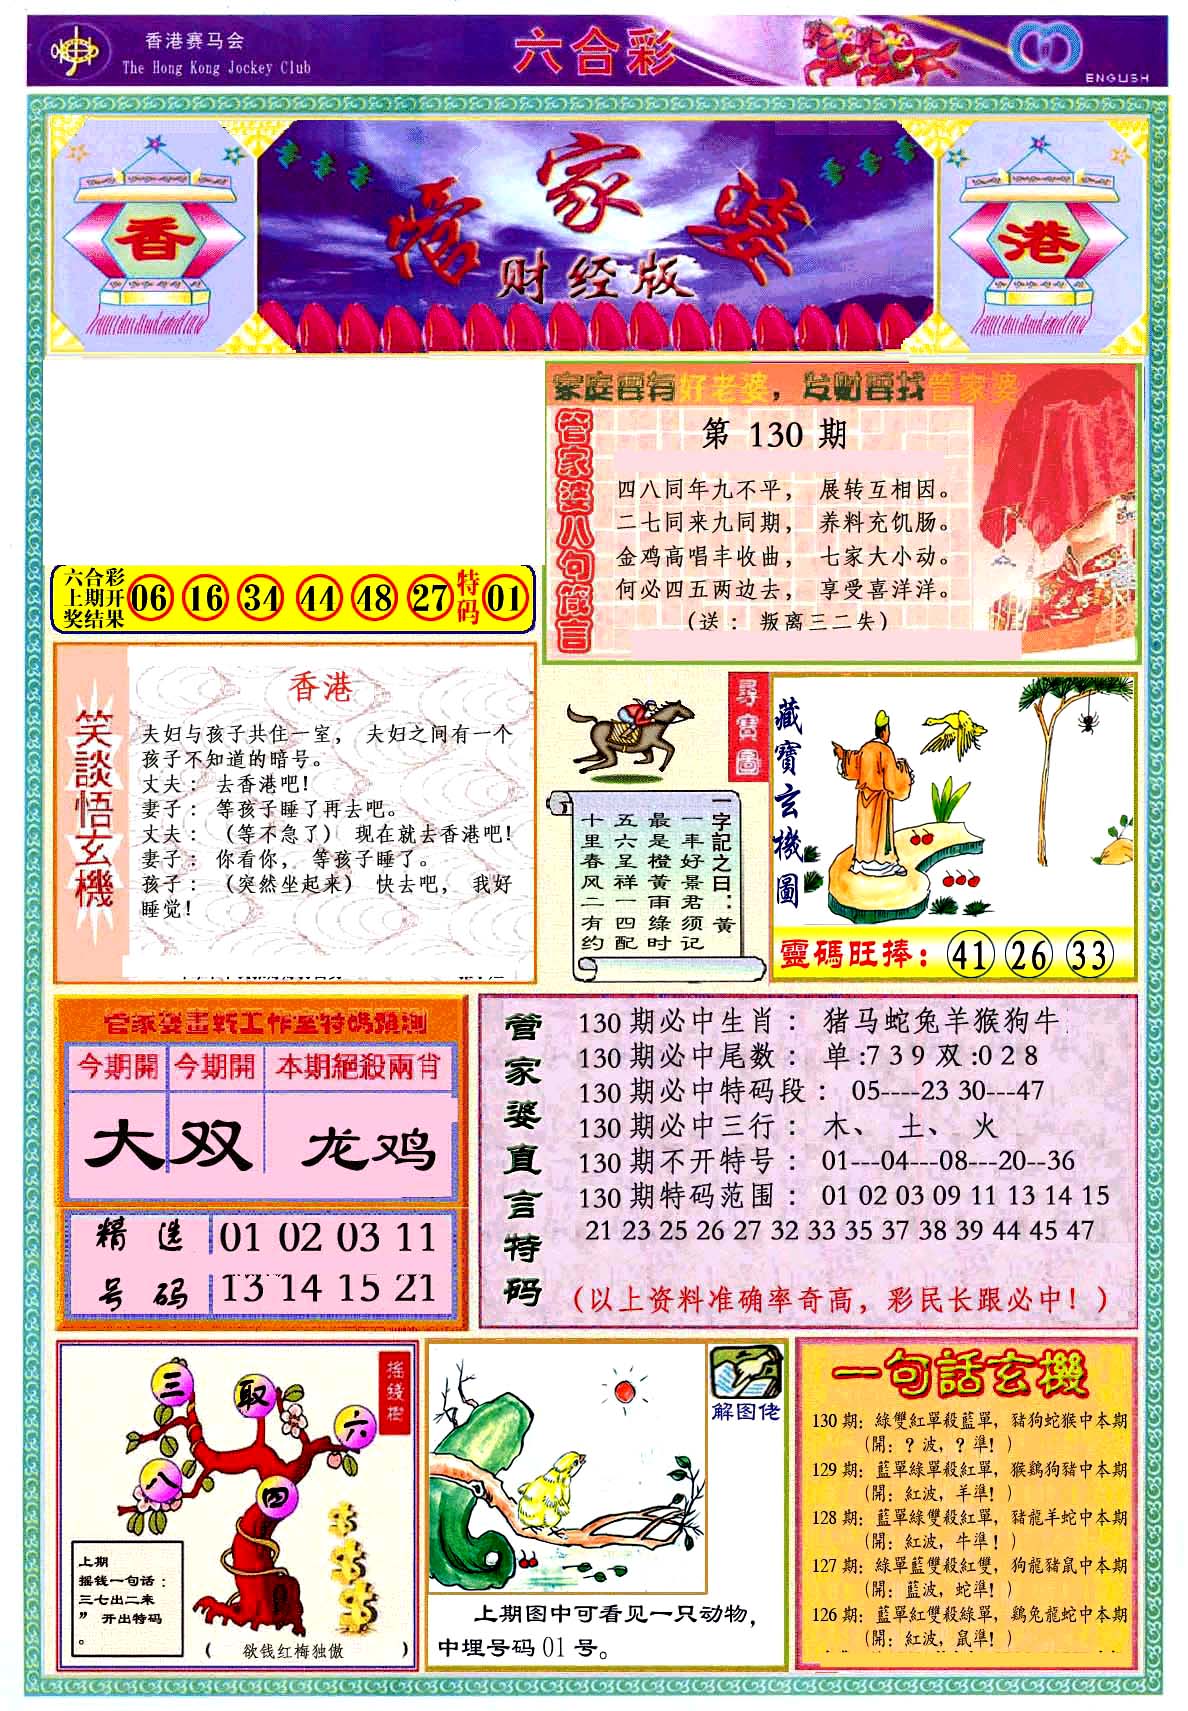 香港赛马会
The Hong Kong Jockey Club
六合彩
ENGLISH
香
管家婆
财经版
港
六合彩
上期开
奖结果
06 16 34 44 48 27
特码
01
家庭要有好老婆，发财要找管家婆
管家婆八句箴言
第 130 期
四八同年九不平， 展转互相因。
二七同来九同期， 养料充饥肠。
金鸡高唱丰收曲， 七家大小动。
何必四五两边去， 享受喜洋洋。
（送： 叛离三二失）
笑談悟玄機
香港
夫妇与孩子共住一室， 夫妇之间有一个
孩子不知道的暗号。
丈夫： 去香港吧！
妻子： 等孩子睡了再去吧。
丈夫：（等不急了） 现在就去香港吧！
妻子： 你看你， 等孩子睡了。
孩子：（突然坐起来） 快去吧， 我好
睡觉！
尋寶圖
一字記之曰：黃
一年好景君须记
最是橙黃雨綠时
五六呈祥一四配
十里春风二有约
藏寶玄機圖
靈碼旺捧：41 26 33
管家婆畫莊工作室特碼預測
今期開 今期開 本期絕殺兩肖
大 双 龙鸡
精选 01 02 03 11
号码 13 14 15 21
管家婆直言特码
130 期必中生肖： 猪马蛇兔羊猴狗牛
130 期必中尾数： 单:7 3 9 双:0 2 8
130 期必中特码段： 05----23 30---47
130 期必中三行： 木、 土、 火
130 期不开特号： 01---04---08---20--36
130 期特码范围： 01 02 03 09 11 13 14 15
21 23 25 26 27 32 33 35 37 38 39 44 45 47
（以上资料准确率奇高，彩民长跟必中！）
摇錢樹
三 取 六
八 四
上期
摇钱一句话：
三七出二来
” 开出特码
。
（ 欲钱红梅独傲 ）
解图佬
上期图中可看见一只动物，
中埋号码 01 号。
一句話玄機
130 期：綠雙紅單殺藍單，豬狗蛇猴中本期
（開：？波，？準！）
129 期：藍單綠單殺紅單，猴鷄狗豬中本期
（開：紅波，羊準！）
128 期：藍單綠雙殺紅單，豬龍羊蛇中本期
（開：紅波，牛準！）
127 期：綠單藍雙殺紅雙，狗龍豬鼠中本期
（開：藍波，蛇準！）
126 期：藍單紅雙殺綠單，鷄兔龍蛇中本期
（開：紅波，鼠準！）